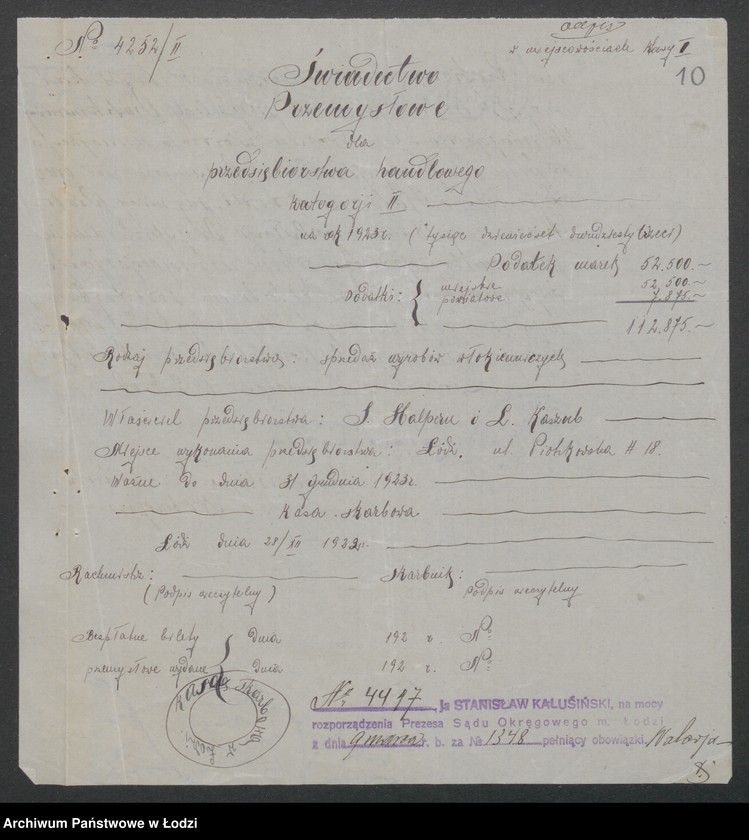 Odpis
№ 4252/II
w miejscowościach klasy I
10
Świadectwo
Przemysłowe
dla
przedsiębiorstwa handlowego
kategorji II
na rok 1923 r. (tysiąc dziewięćset dwudziesty trzeci)
Podatek marek 52.500.~
Dodatki: { miejskie 52,500.~
powiatowe 7.875.~
112.875.~
Rodzaj przedsiębiorstwa: sprzedaż wyrobów włókienniczych
Właściciel przedsiębiorstwa: S. Halpern i L. Kaszub
Miejsce wykonania przedsiębiorstwa: Łódź, ul. Piotrkowska # 18.
Ważne do dnia 31 grudnia 1923 r.
Kasa Skarbowa
Łódź dnia 28/XII 1922 r.
Rachmistrz: Skarbnik:
(Podpis nieczytelny) Podpis nieczytelny
Bezpłatne bilety } dnia 192 r. №
przemysłowe wydane dnia 192 r. №
Kasa Skarbowa w Łodzi
№ 4497 ja STANISŁAW KAŁUSIŃSKI, na mocy
rozporządzenia Prezesa Sądu Okręgowego m. Łodzi
z dnia 9 marca r. b. za № 1348 pełniący obowiązki
Archiwum Państwowe w Łodzi